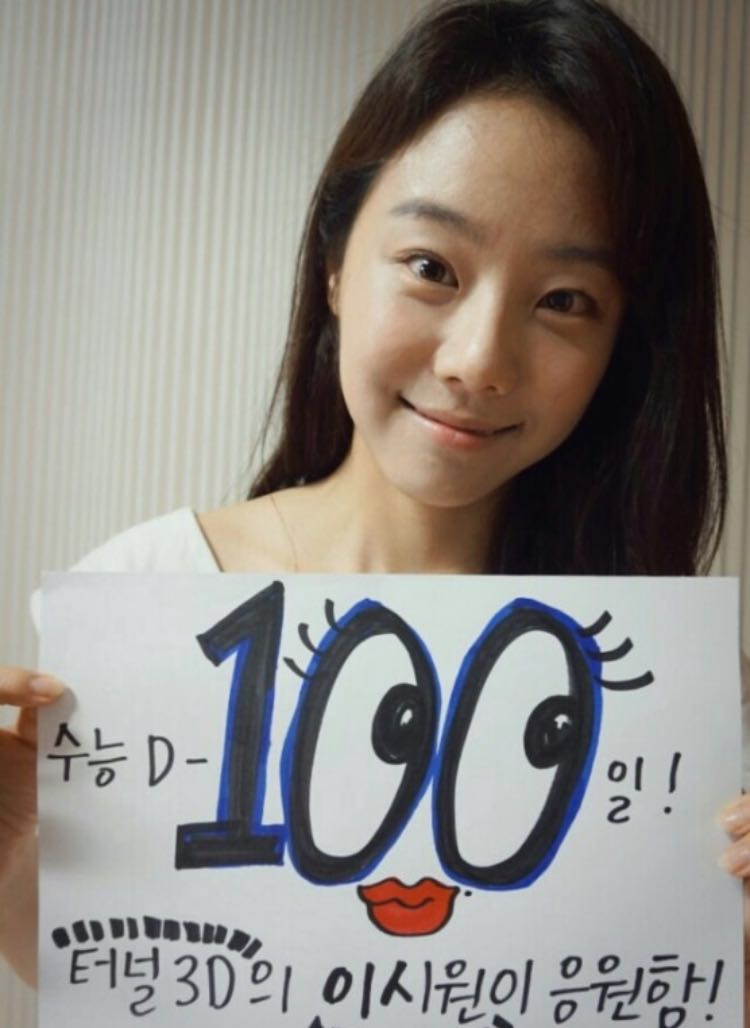 수능 D-100일!
터널 3D의 이시원이 응원함!